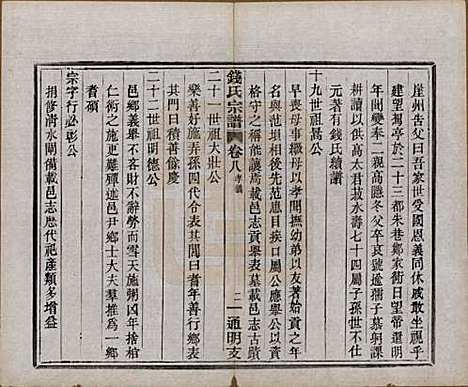 崖州告父曰吾家世受國恩義同休戚敢坐視乎
建望蜀亭於二十三都朱巷鄰家術日望帝還明
年間變奉二親高隱冬父卒哀號逾孺子墓躬課
耕讀以供高太君菽水壽七十四屬子孫世不仕
元著有錢氏續譜
十九世祖昜公
早喪母事後母以孝聞撫幼弟以友著給賁之年
名與范垻相後先范患目疾口屬公應舉公以
格守之稱能讓焉載邑志貢舉表墓載邑志古蹟
錢氏宗譜
卷八
孝義
二
通明支
二十一世祖大壯公
樂善好施弄孫四代合表其閭曰耆年善行載
其門曰積善餘慶
二十二世祖明德公
邑鄉義事不計有財不辭勞而雪天施粥凶年捨棺
仁術之施更難殫述邑尹鄉士大夫羣推為一鄉
耆碩
宗字行必彰公
捐修淸水閘備載邑志歷代祀產類多增益